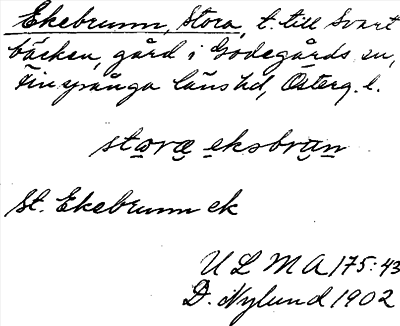 Ekebrunn, Stora, t. till Svart
bäcken, gård i Godegårds sn,
Finspånga läns hd, Österg. l.
storæ eksbrun
St. Ekebrunn ek
ULMA 175:43
D. Nylund 1902